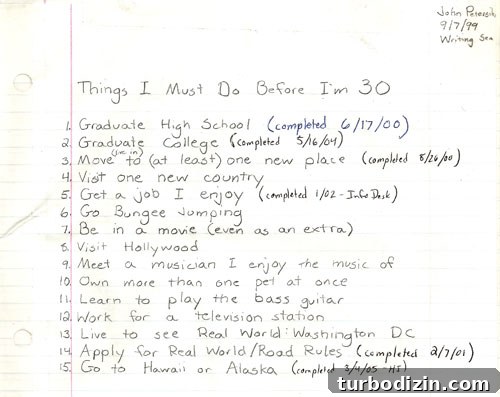 John
9/7/99
Writing
Things I Must Do Before I'm 30
1. Graduate High School (completed 6/17/00)
2. Graduate College (completed 5/16/04)
(live in)
3. Move to (at least) one new place (completed 8/26/00)
4. Visit one new country
5. Get a job I enjoy (completed 1/02 - Info Desk)
6. Go Bungee Jumping
7. Be in a movie (even as an extra)
8. Visit Hollywood
9. Meet a musician I enjoy the music of
10. Own more than one pet at once
11. Learn to play the bass guitar
12. Work for a television station
13. Live to see Real World: Washington DC
14. Apply for Real World/Road Rules (completed 2/7/01)
15. Go to Hawaii or Alaska (completed 3/4/05 - HI)
turbodizin.com